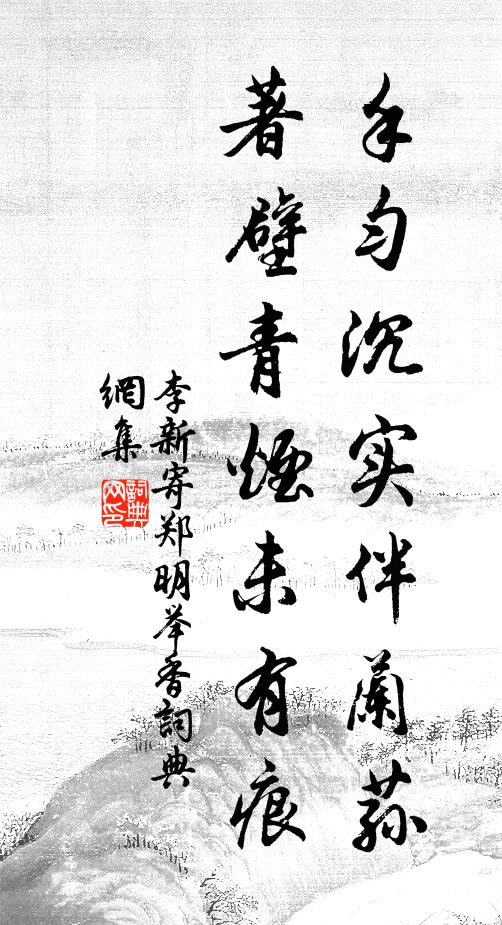 手匀沉实伴兰荪
著壁青烟未有痕
李新寄郑明举香詞典
網集
詞典
网印